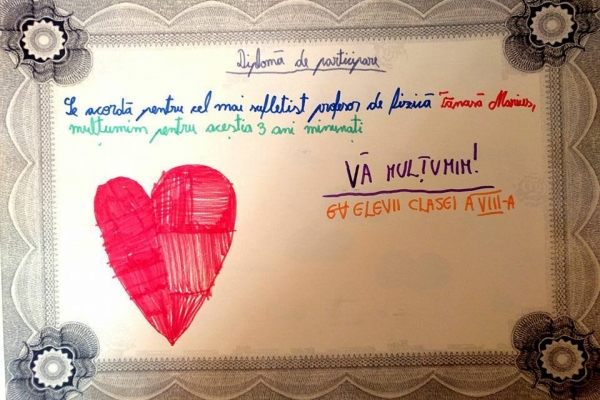 Diplomă de participare
Se acordă pentru cel mai sufletist profesor de fizică Tănasă Marius,
mulțumim pentru aceștia 3 ani minunați
VĂ MULȚUMIM!
ELEVII CLASEI A VIII-A